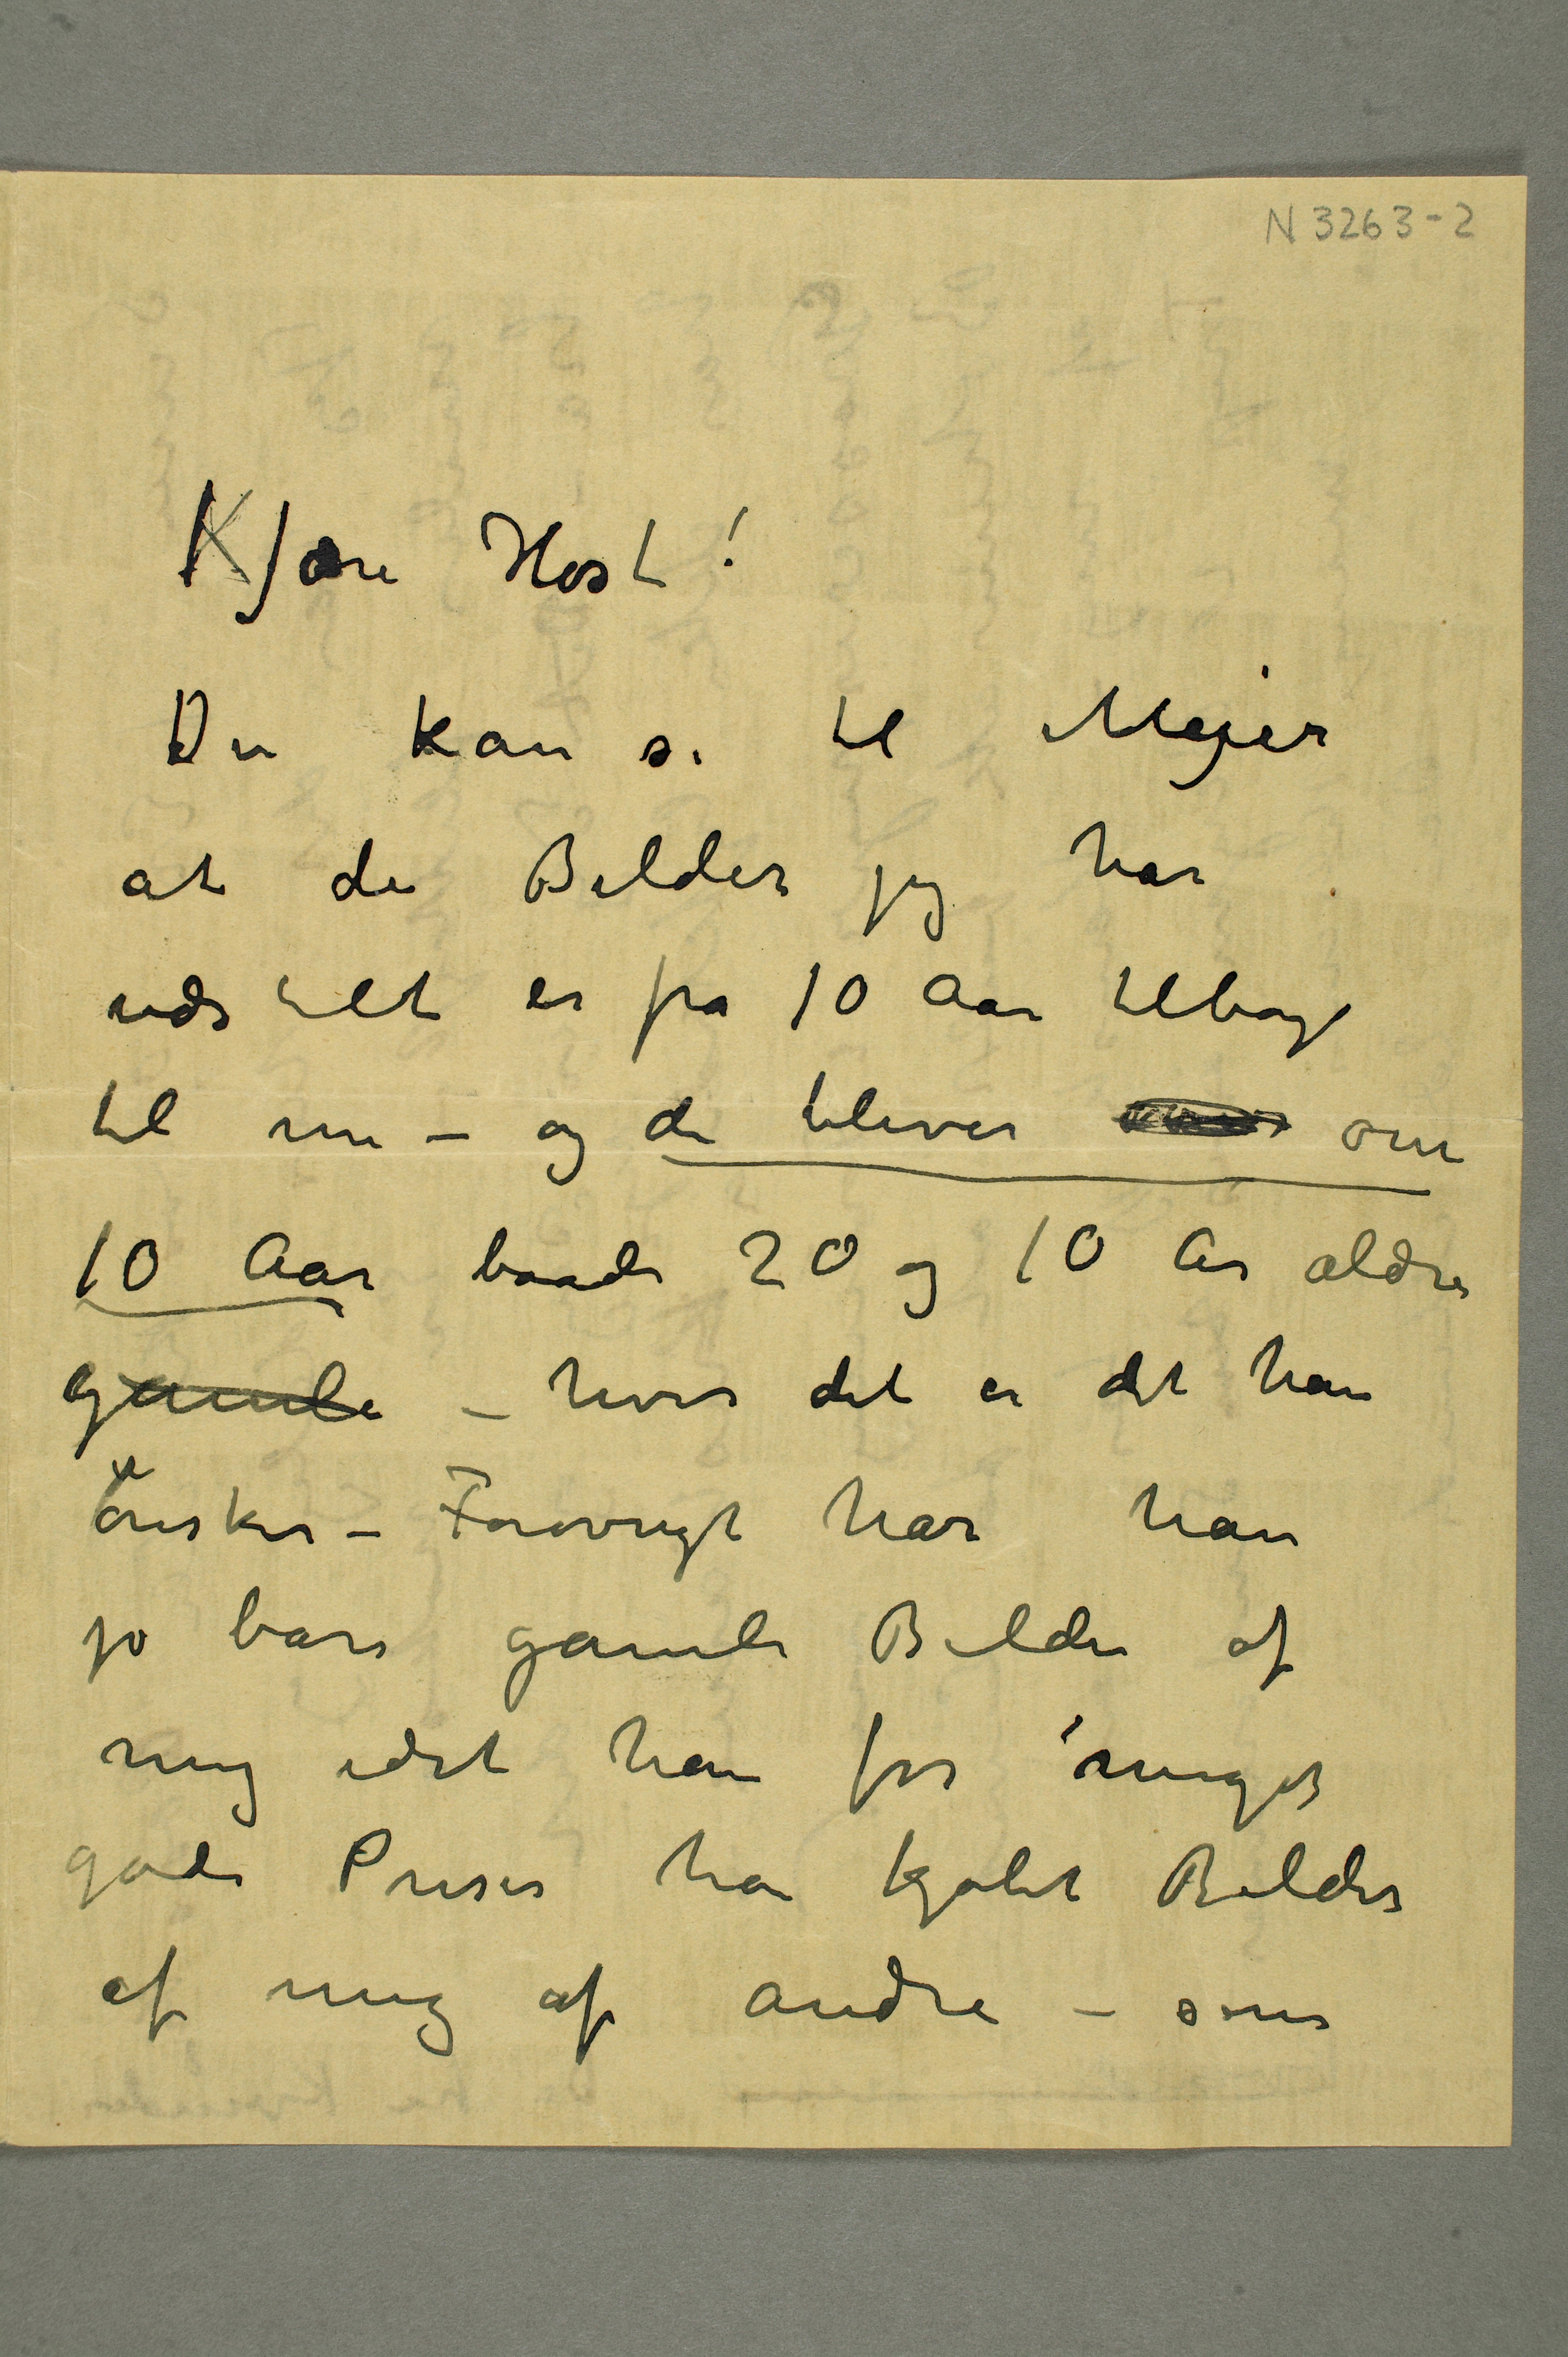 N 3263-2
Kjære Høst!
Du kan si til Mejer
at de Billder jeg har
udstillt er fra 10 Aar tilbage
til nu – og de bliver om
10 Aar baade 20 og 10 År ældre
gamle – hvis det er det han
ønsker – Forøvrigt har han
jo bare gamle Billder af
mig idet han for meget
gode Priser har kjøbt Billder
af mig af andre – som